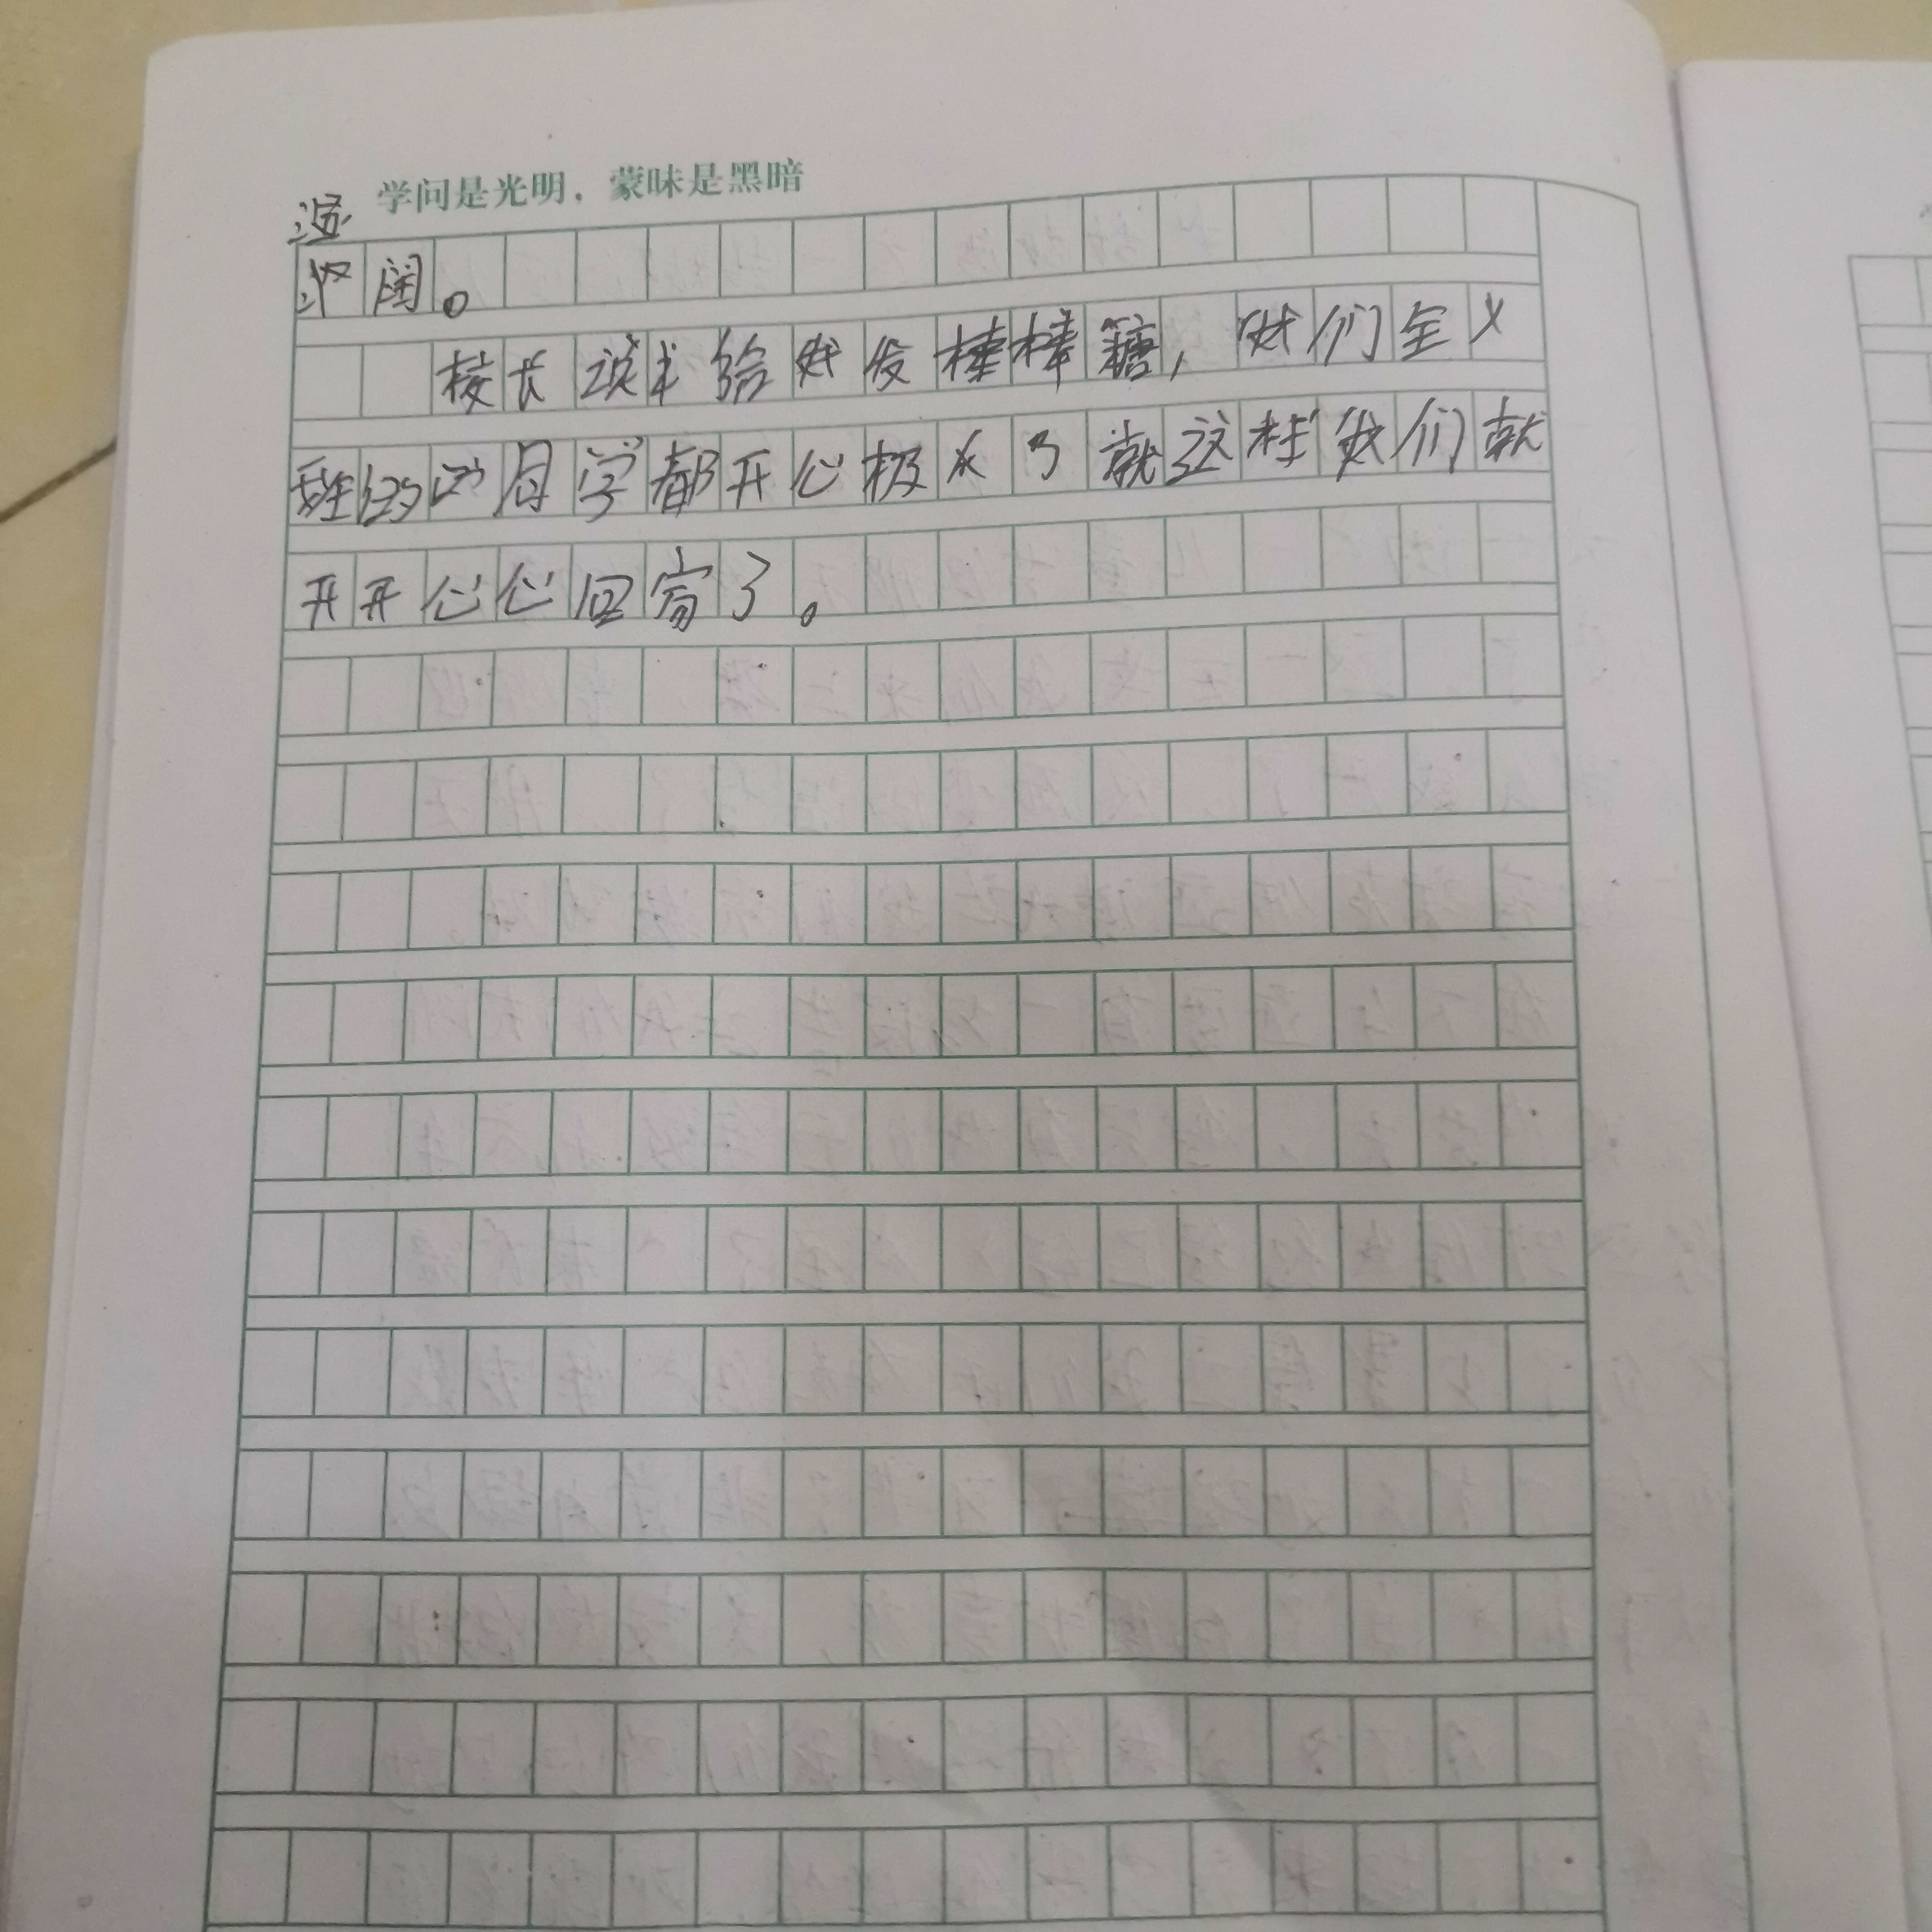 学问是光明，蒙昧是黑暗
阔。
校长说才给我发棒棒糖，我们全
班的同学都开心极了就这样我们就
开开心心回家了。